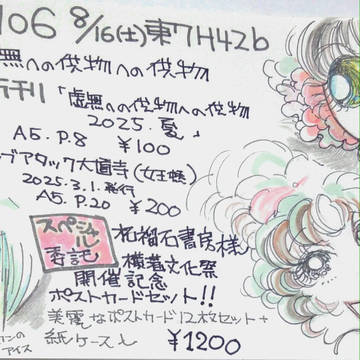 106 8/16(土)東7H42b
無への供物への供物
新刊「虚無への供物への供物
2025.夏」
A5.P.8 ¥100
ブアタック大直寺(女王蜂)
2025.3.1.発行
A5.P.20 ¥200
スペシャル
委託
祝福石書房様
横着文化祭
開催記念
ポストカードセット!!
美麗なポストカード12枚セット+
紙ケース
¥1200
アイス